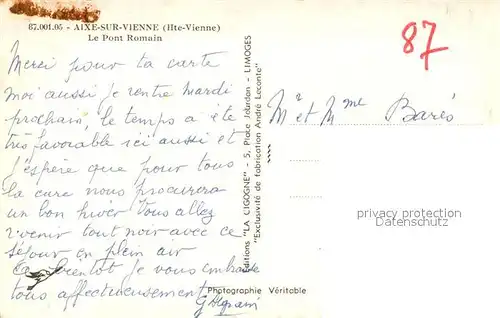 87.001.05 - AIXE-SUR-VIENNE (Hte-Vienne)
Le Pont Romain
87
Merci pour ta carte
moi aussi je rentre mardi
prochain. le temps a été
très favorable ici aussi et
j'espère que pour tous
la cure nous procurera
un bon hiver Vous allez
revenir tout noir avec ce
séjour en plein air
bientôt je vous embrasse
tous affectueusement
Mr et Mme Barès
Editions "LA CIGOGNE" - 5, Place Jourdan - LIMOGES
"Exclusivité de fabrication André Leconte"
Photographie Véritable
copyright protection
DatensicherungPK